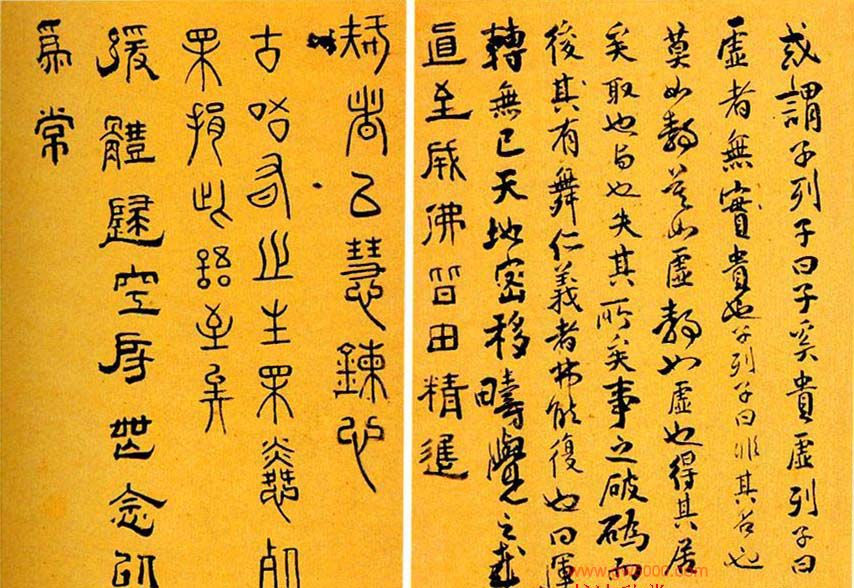 或謂子列子曰子奚貴虛列子曰
虛者無實貴也子列子曰非其名也
莫如靜莫如虛靜如虛也得其居
矣取也與也失其所矣事之破碼而
後其有舞仁義者弗能復也曰運
轉無已天地密移疇覺之哉
直至成佛皆由精進
者以慧鍊心
古 有之生
損此語至矣
緩體 空 世念以
為常